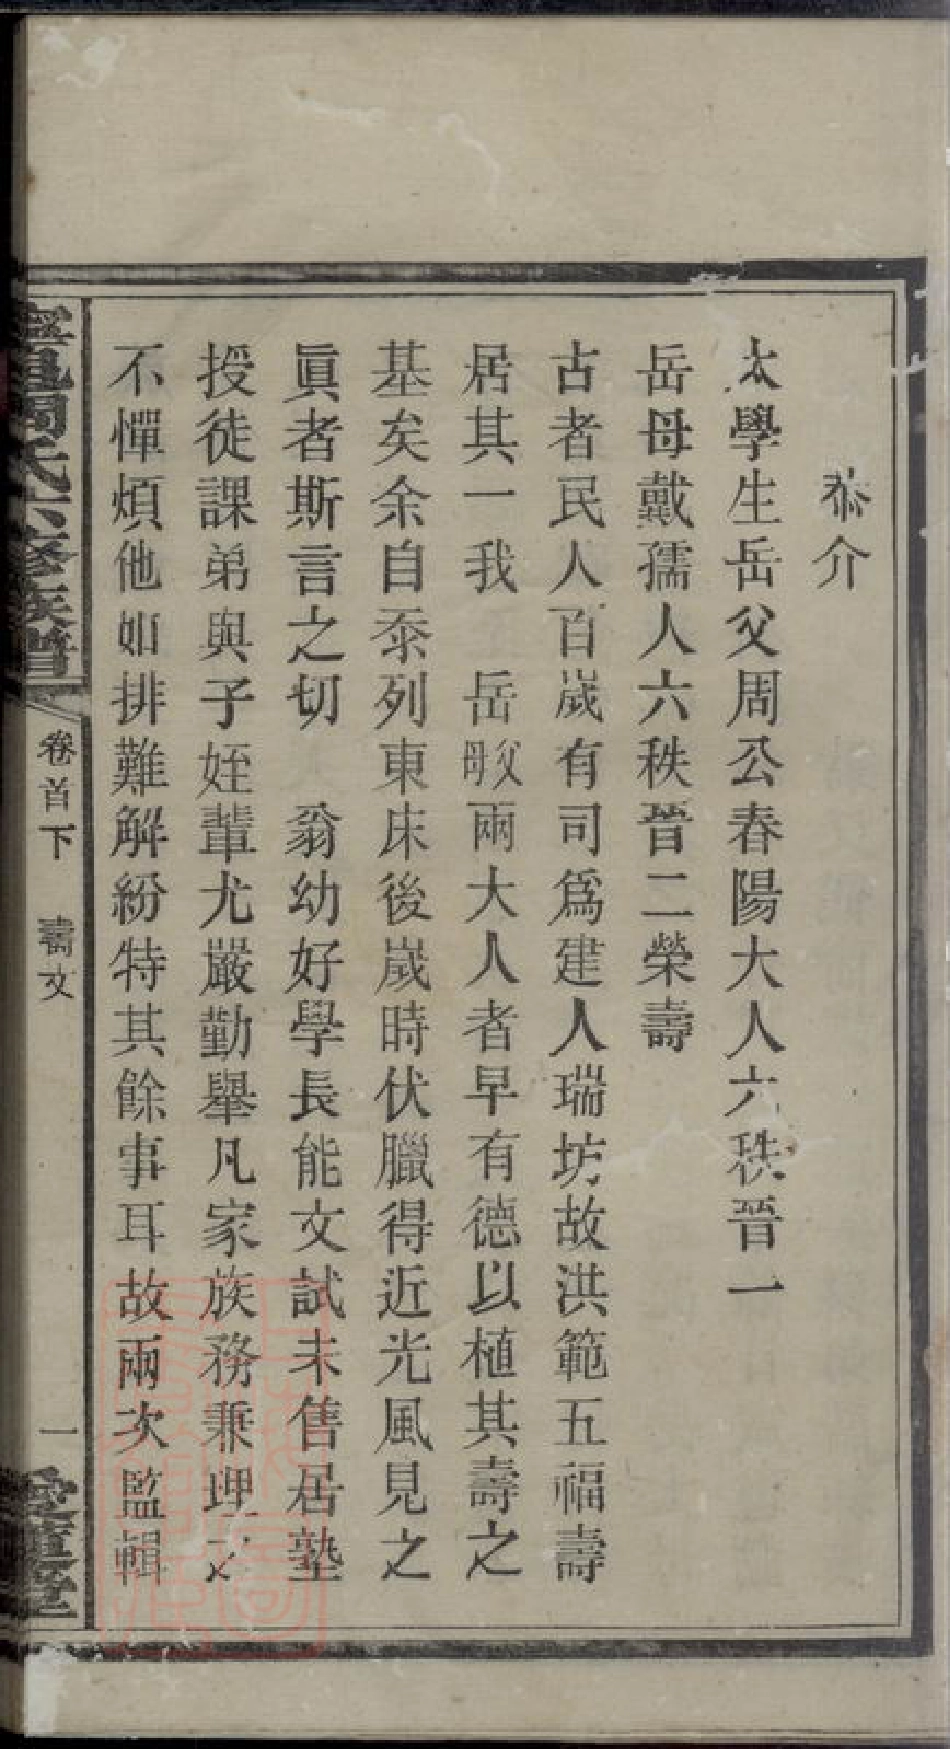 恭介
太學生岳父周公春陽大人六秩晉一
岳母戴孺人六秩晉二榮壽
古者民人百歲有司爲建人瑞坊故洪範五福壽
居其一我　岳母父兩大人者早有德以植其壽之
基矣余自忝列東床後歲時伏臘得近光風見之
眞者斯言之切　翁幼好學長能文試未售居塾
授徒課弟與子姪輩尤嚴勤舉凡家族務兼理之
不憚煩他如排難解紛特其餘事耳故兩次監輯
周氏六修族譜
卷首下　壽文
一
愛蓮堂